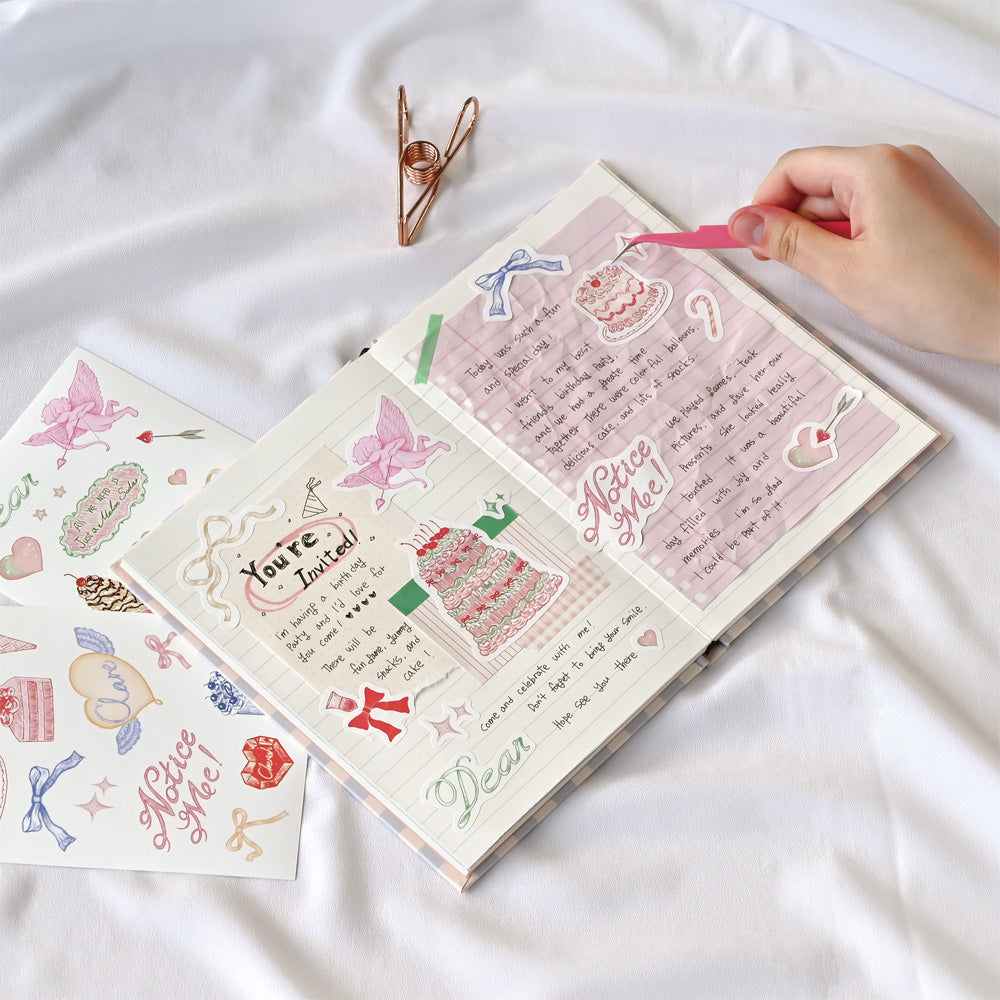 You're
Invited!
I'm having a birthday
Party and I'd love for
you come!
There will be
fun game, yummy
snacks, and
cake!
Come and celebrate with me!
Don't forget to bring your smile.
Hope see you there
Dear
Today was such a fun
and special day!
I went to my best
friend's birthday Party,
and we had a great time
together. There were colorful balloons,
delicious cake, and lots of snacks
We played games, took
Pictures, and gave her our
Presents. She looked really
touched. It was a beautiful
day filled with joy and
memories. I'm so glad
I could be part of it.
Notice
Me!
Notice
Me!